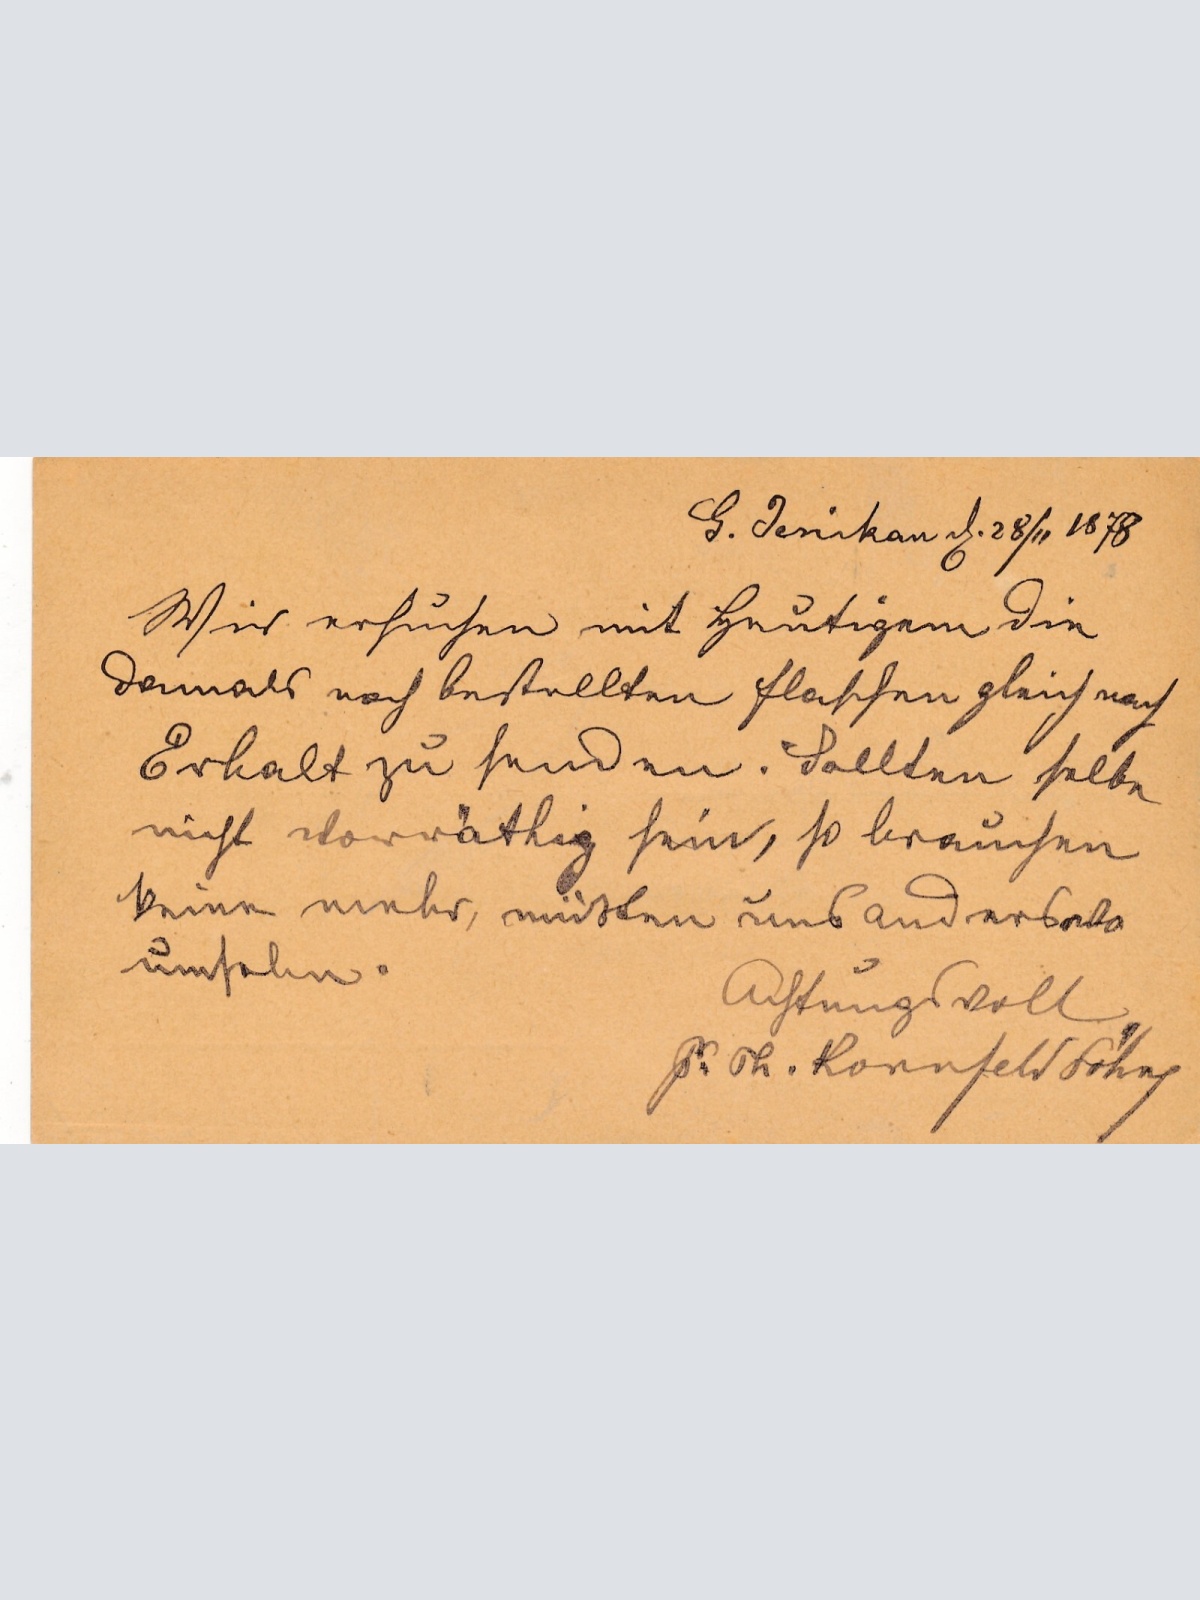 G. Jenikau d. 28/11 1878
Wir ersuchen mit Heutigem die
damals noch bestellten Flaschen gleich nach
Erhalt zu senden. Sollten selbe
nicht vorräthig sein, so brauchen
keine mehr, müßten uns anderswo
umsehn.
Achtungsvoll
Th. Kornfeld Söhne